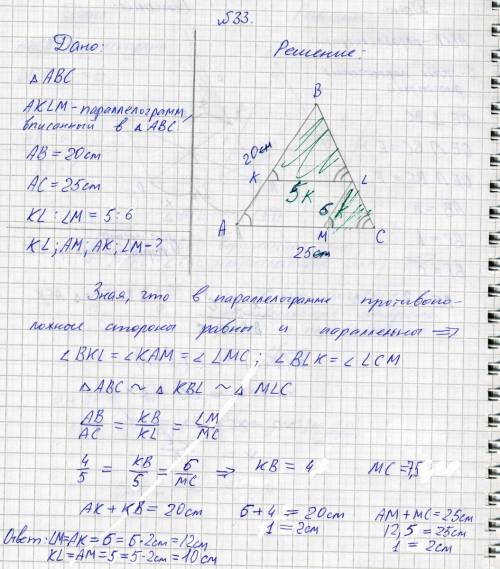 №33.
Дано:
△ ABC
AKLM - параллелограмм,
вписанный в △ ABC
AB = 20см
AC = 25см
KL : LM = 5 : 6
KL; AM; AK; LM - ?
Решение:
B
20см
K
L
5к
6 к
A
M
C
25см
Зная, что в параллелограмме противопо-
ложные стороны равны и параллельны ⇒
∠BKL = ∠KAM = ∠LMC ; ∠BLK = ∠LCM
△ABC ~ △KBL ~ △MLC
AB/AC = KB/KL = LM/MC
4/5 = KB/5 = 6/MC ⇒ KB = 4 MC = 7,5
AK + KB = 20см 6+4 = 20см AM + MC = 25см
1 = 2см 12,5 = 25см
1 = 2см
Ответ: LM=AK = 6 = 6·2см = 12см
KL = AM = 5 = 5·2см = 10см